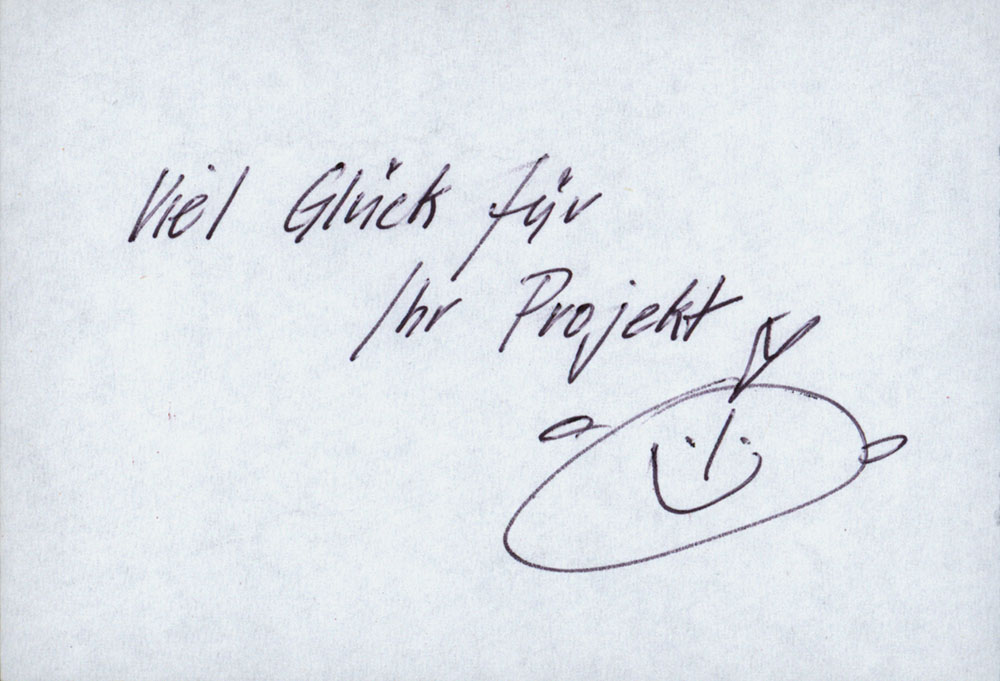 Viel Glück für
Ihr Projekt